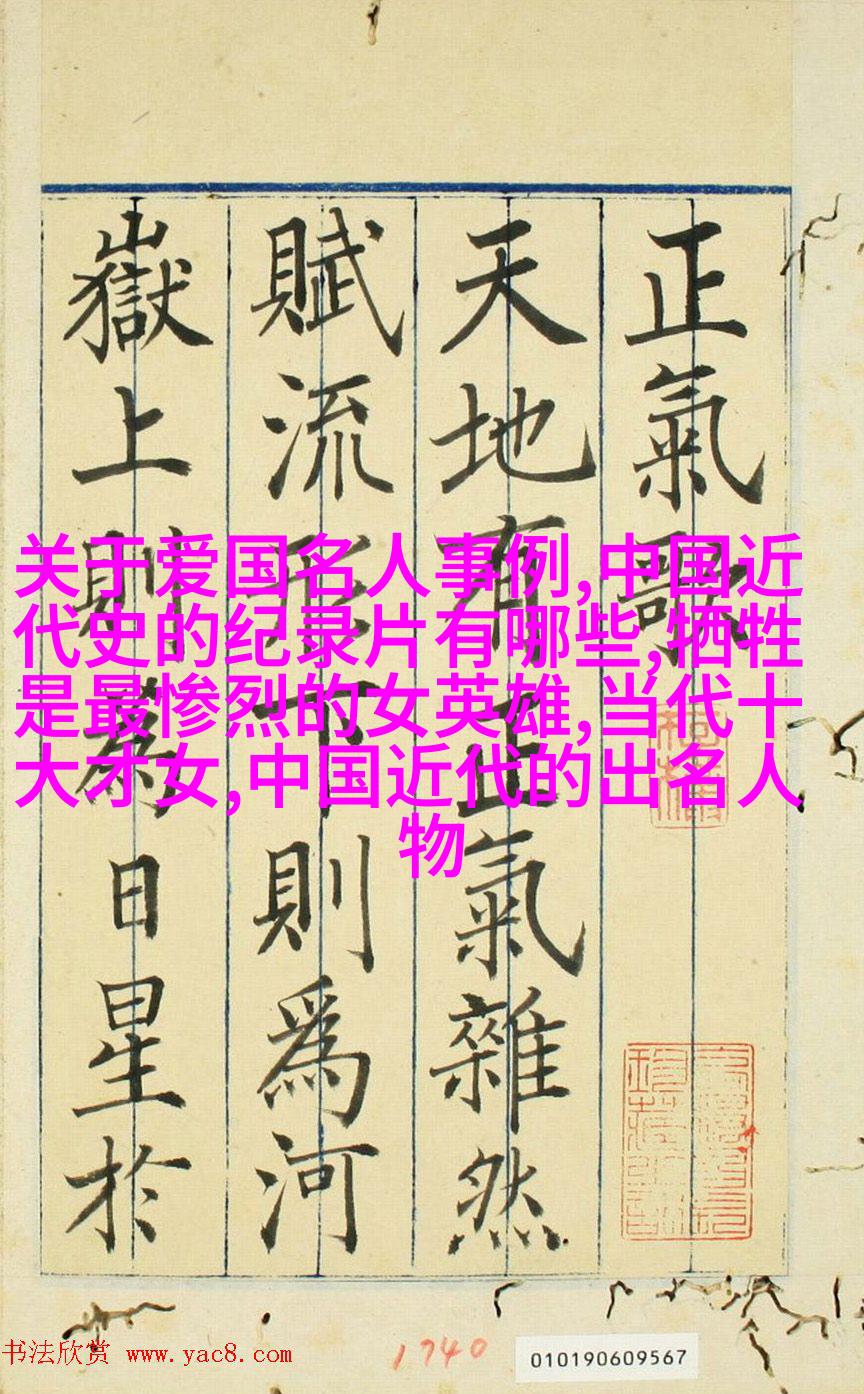 正氣歌
天地有正氣雜然
賦流形下則爲河
嶽上則為日星於
关于爱国名人事例,中国近
代史的纪录片有哪些,牺牲
是最惨烈的女英雄,当代十
大才女,中国近代的出名人
物
书法欣赏 www.yac8.com
1740
010190609567